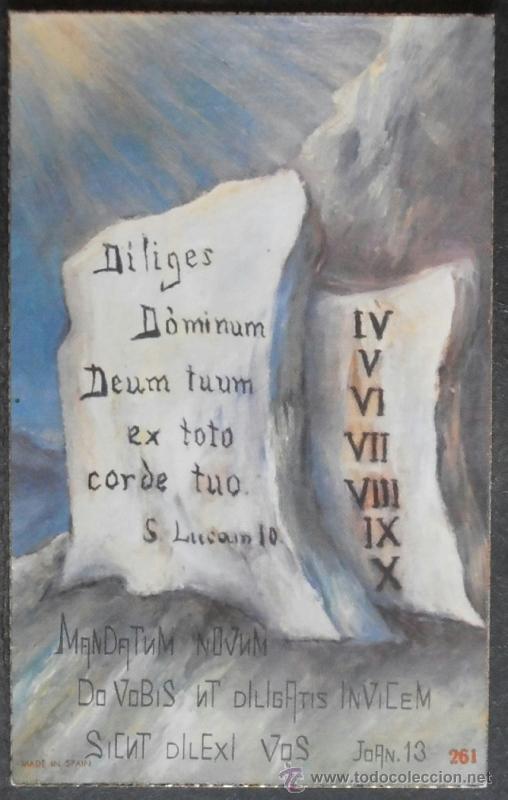 Diliges
Dóminum
Deum tuum
ex toto
corde tuo.
S. Lucam 10.
IV
V
VI
VII
VIII
IX
X
MANDATUM NOVUM
DO VOBIS UT DILIGATIS INVICEM
SICUT DILEXI VOS JOAN. 13
MADE IN SPAIN
261
todocoleccion
www.todocoleccion.net